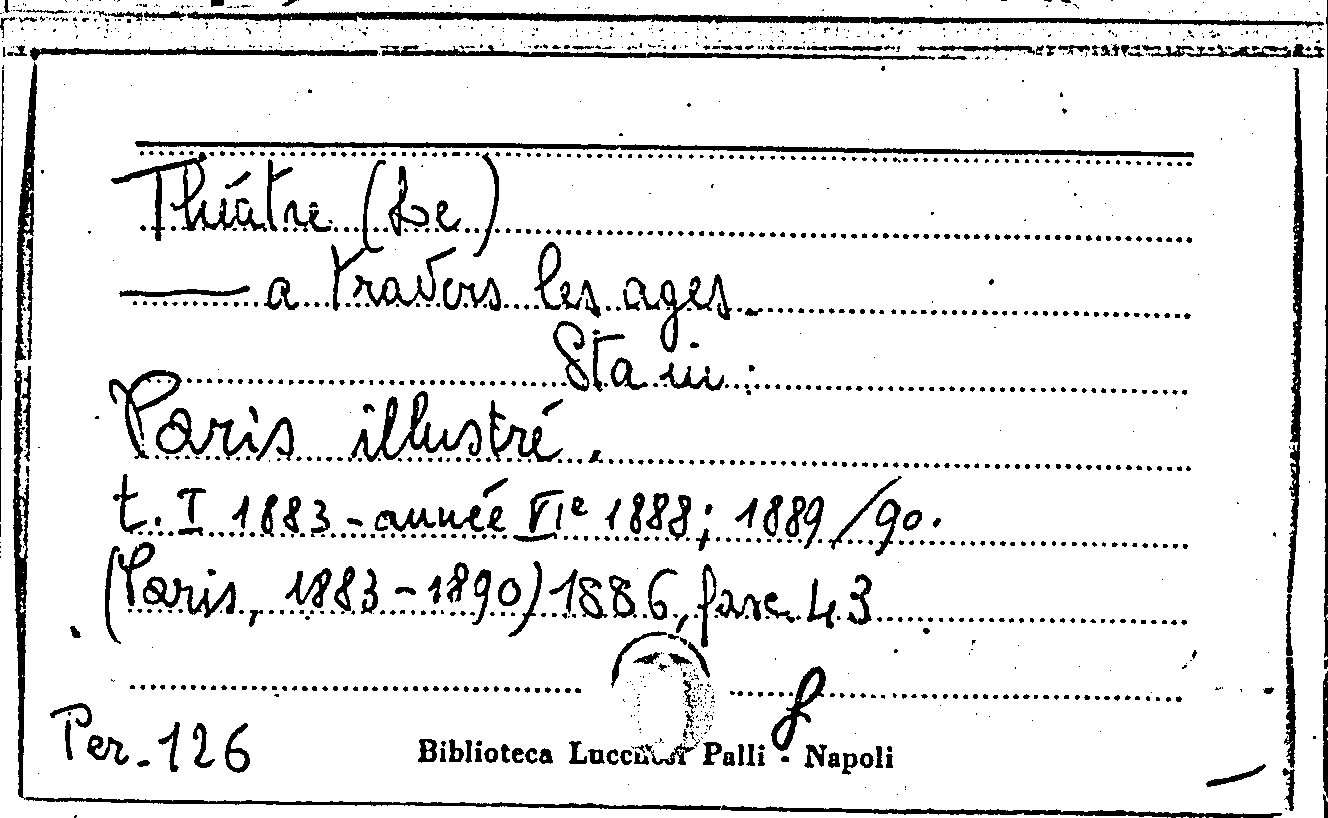 Théâtre (Le)
—— a travers les ages.
Sta in:
Paris illustré.
t. I 1883 - année VIe 1888; 1889/90.
(Paris, 1883-1890) 1886, fasc. 43
f
Per. 126
Biblioteca Lucchesi Palli - Napoli